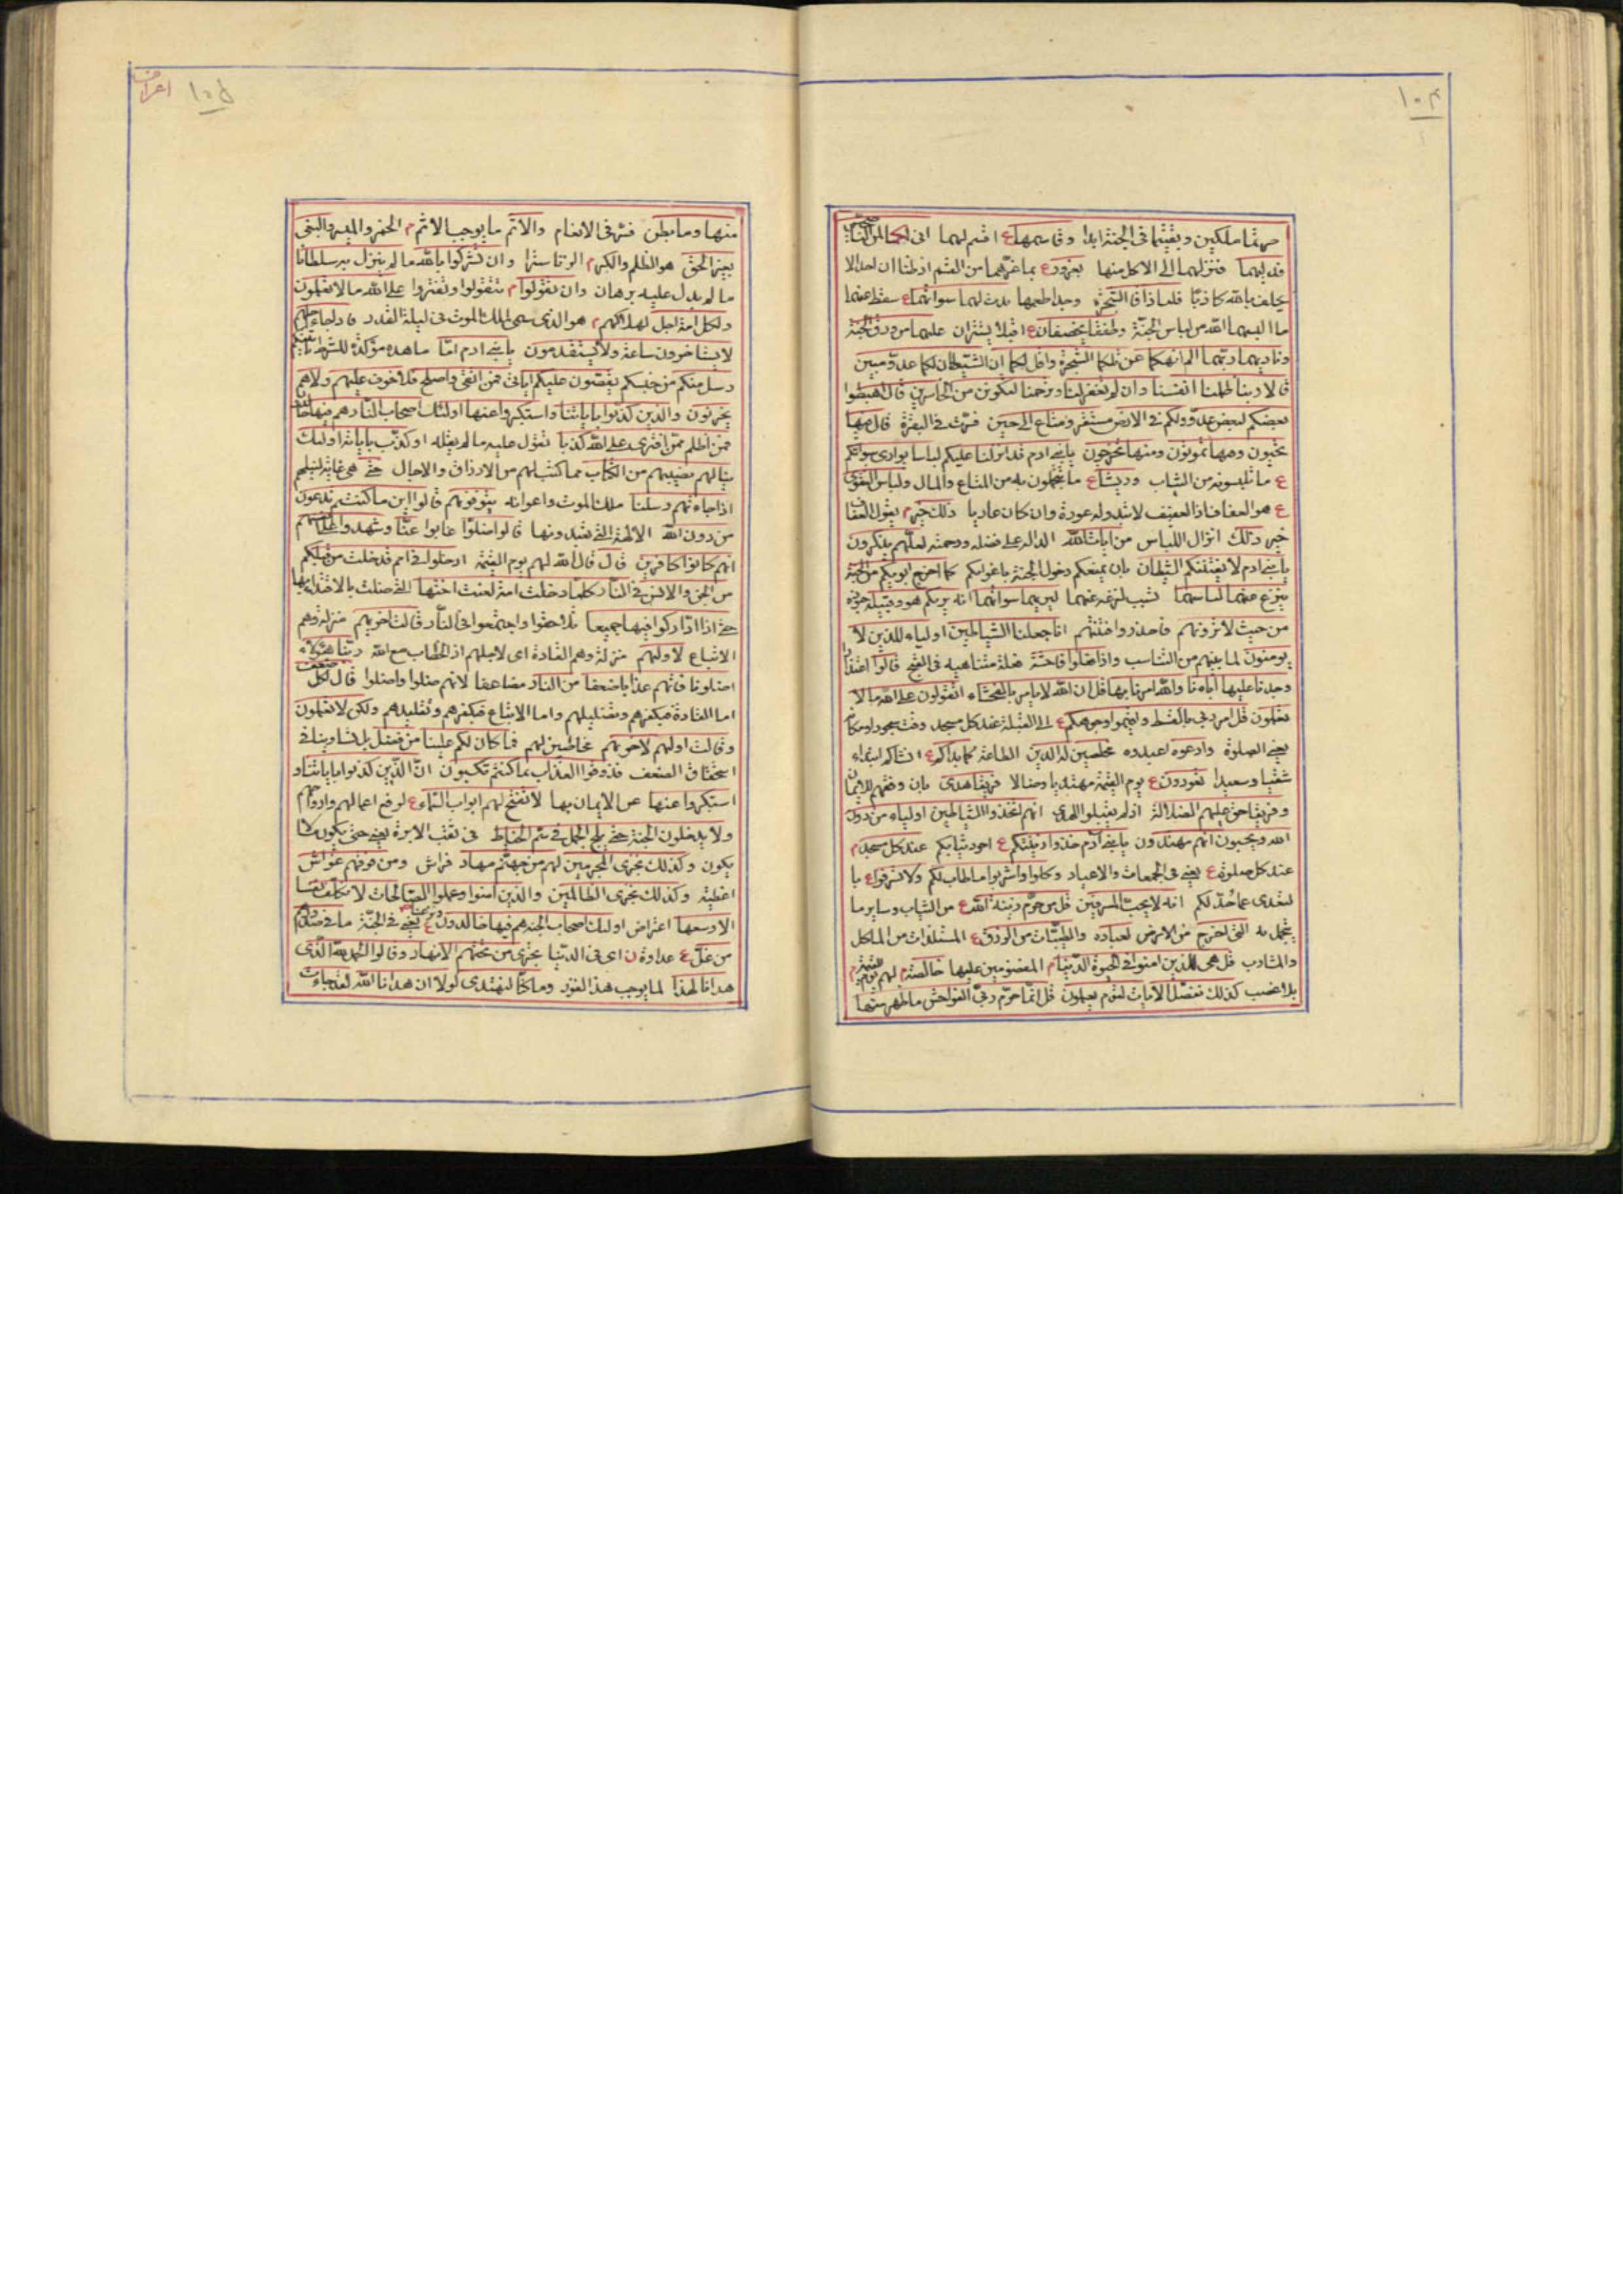 ١٠٤
صرتما ملكين وبقيتما فى الجنة ابدا وقاسمهما ع اقسم لهما انى لكما لمن الناصحين
فدليهما فنزلهما الى الاكل منها بغرور ع بما غرهما من القسم اذ ظنا ان احدا لا
يحلف بالله كاذبا فلما ذاقا الشجرة وجدا طعمها بدت لهما سواتهما ع سقط عنهما
ما البسهما الله من لباس الجنة وطفقا يخصفان ع اقبلا يستران عليهما من ورق الجنة
وناديهما ربهما الم انهكما عن تلكما الشجرة واقل لكما ان الشيطان لكما عدو مبين
قالا ربنا ظلمنا انفسنا وان لم تغفر لنا وترحمنا لنكونن من الخاسرين قال اهبطوا
بعضكم لبعض عدو ولكم فى الارض مستقر ومتاع الى حين فسرت فى البقرة قال فيها
تحيون وفيها تموتون ومنها تخرجون يا بنى ادم قد انزلنا عليكم لباسا يوارى سواتكم
ع ما تلبسونه من الثياب وريشا ع ما تتجملون به من المتاع والمال ولباس التقوى
ع هو العفاف اذ العفيف لا تبدو له عورة وان كان عاريا ذلك خير م يقول العفاف
خير ذلك انزال اللباس من ايات الله الدالة على فضله ورحمته لعلهم يذكرون
يا بنى ادم لا يفتننكم الشيطان بان يمنعكم دخول الجنة باغوائكم كما اخرج ابويكم من الجنة
ينزع عنهما لباسهما نسب لنزعه عنهما ليريهما سواتهما انه يريكم هو وقبيله جنوده
من حيث لا ترونهم فاحذروا فتنتهم انا جعلنا الشياطين اولياء للذين لا
يومنون لما بينهم من التناسب واذا فعلوا فاحشة فعلة متناهية فى القبح قالوا اعتذارا
وجدنا عليها اباءنا والله امرنا بها قل ان الله لا يامر بالفحشاء اتقولون على الله ما لا
تعلمون قل امر ربى بالقسط واقيموا وجوهكم ع الى القبلة عند كل مسجد وقت سجود او مكانه
يعنى الصلوة وادعوه اعبدوه مخلصين له الدين الطاعة كما بداكم ع انشاكم ابتداء
شقيا وسعيدا تعودون ع يوم القيمة مهتديا وضالا فريقا هدى بان وفقهم للايمان
وفريقا حق عليهم الضلالة اذ لم يقبلوا الهدى انهم اتخذوا الشياطين اولياء من دون
الله ويحسبون انهم مهتدون يا بنى ادم خذوا زينتكم ع اجود ثيابكم عند كل مسجد م
عند كل صلوة ع يعنى فى الجمعات والاعياد وكلوا واشربوا ما طاب لكم ولا تسرفوا ع با
لتعدى عما حد لكم انه لا يحب المسرفين قل من حرم زينة الله ع من الثياب وساير ما
يتجمل به التى اخرج من الارض لعباده والطيبات من الرزق ع المستلذات من الماكل
والمشارب قل هى للذين امنوا فى الحيوة الدنيا م المغضوبين عليها خالصة م لهم يوم القيمة م
بلا غصب كذلك نفصل الايات لقوم يعلمون قل انما حرم ربى الفواحش ما ظهر منها
١٠۵
اعراف
منها وما بطن فسر فى الانعام والاثم ما يوجب الاثم م الخمر والميسر والبغى
بغير الحق هو الظلم والكبر م الزنا سرا وان تشركوا بالله ما لم ينزل به سلطانا
ما لم يدل عليه برهان وان تقولوا م تتقولوا وتفتروا على الله ما لا تعلمون
ولكل امة اجل لهلاكهم م هو الذى سمى لملك الموت فى ليلة القدر فاذا جاء اجلهم
لا يستاخرون ساعة ولا يستقدمون يا بنى ادم اما ما هذه مؤكدة للشرط ياتينكم
رسل منكم من جنسكم يقصون عليكم اياتى فمن اتقى واصلح فلا خوف عليهم ولا هم
يحزنون والذين كذبوا باياتنا واستكبروا عنها اولئك اصحاب النار هم فيها خالدون
فمن اظلم ممن افترى على الله كذبا تقول عليه ما لم يقله او كذب باياته اولئك
ينالهم نصيبهم من الكتاب مما كتب لهم من الارزاق والاجال حتى هى غاية لنيلهم
اذا جاءتهم رسلنا ملك الموت واعوانه يتوفونهم قالوا اين ما كنتم تدعون
من دون الله الالهة التى تعبدونها قالوا ضلوا غابوا عنا وشهدوا على انفسهم
انهم كانوا كافرين قال قال الله لهم يوم القيمة ادخلوا فى امم قد خلت من قبلكم
من الجن والانس فى النار كلما دخلت امة لعنت اختها التى ضلت بالاقتداء بها
حتى اذا اداركوا فيها جميعا تلاحقوا واجتمعوا فى النار قالت اخريهم منزلة وهم
الاتباع لاوليهم منزلة وهم القادة اى لاجلهم اذ الخطاب مع الله ربنا هؤلاء
اضلونا فاتهم عذابا ضعفا من النار مضاعفا لانهم ضلوا واضلوا قال لكل ضعف
اما القادة فبكفرهم وتضليلهم واما الاتباع فبكفرهم وتقليدهم ولكن لا تعلمون
وقالت اوليهم لاخريهم مخاطبين لهم فما كان لكم علينا من فضل بل تساوينا فى
استحقاق الضعف فذوقوا العذاب بما كنتم تكسبون ان الذين كذبوا باياتنا و
استكبروا عنها عن الايمان بها لا تفتح لهم ابواب السماء ع لرفع اعمالهم وارواحهم
ولا يدخلون الجنة حتى يلج الجمل فى سم الخياط فى ثقب الابرة يعنى حتى يكون ما لا
يكون وكذلك نجزى المجرمين لهم من جهنم مهاد فراش ومن فوقهم غواش
اغطية وكذلك نجزى الظالمين والذين امنوا وعملوا الصالحات لا نكلف نفسا
الا وسعها اعتراض اولئك اصحاب الجنة هم فيها خالدون ونزعنا ع يعنى فى الجنة ما فى صدورهم
من غل ع عداوة ن اى فى الدنيا تجرى من تحتهم الانهار وقالوا الحمد لله الذى
هدانا لهذا لما يوجب هذا الفوز وما كنا لنهتدى لولا ان هدانا الله لقد جاءت